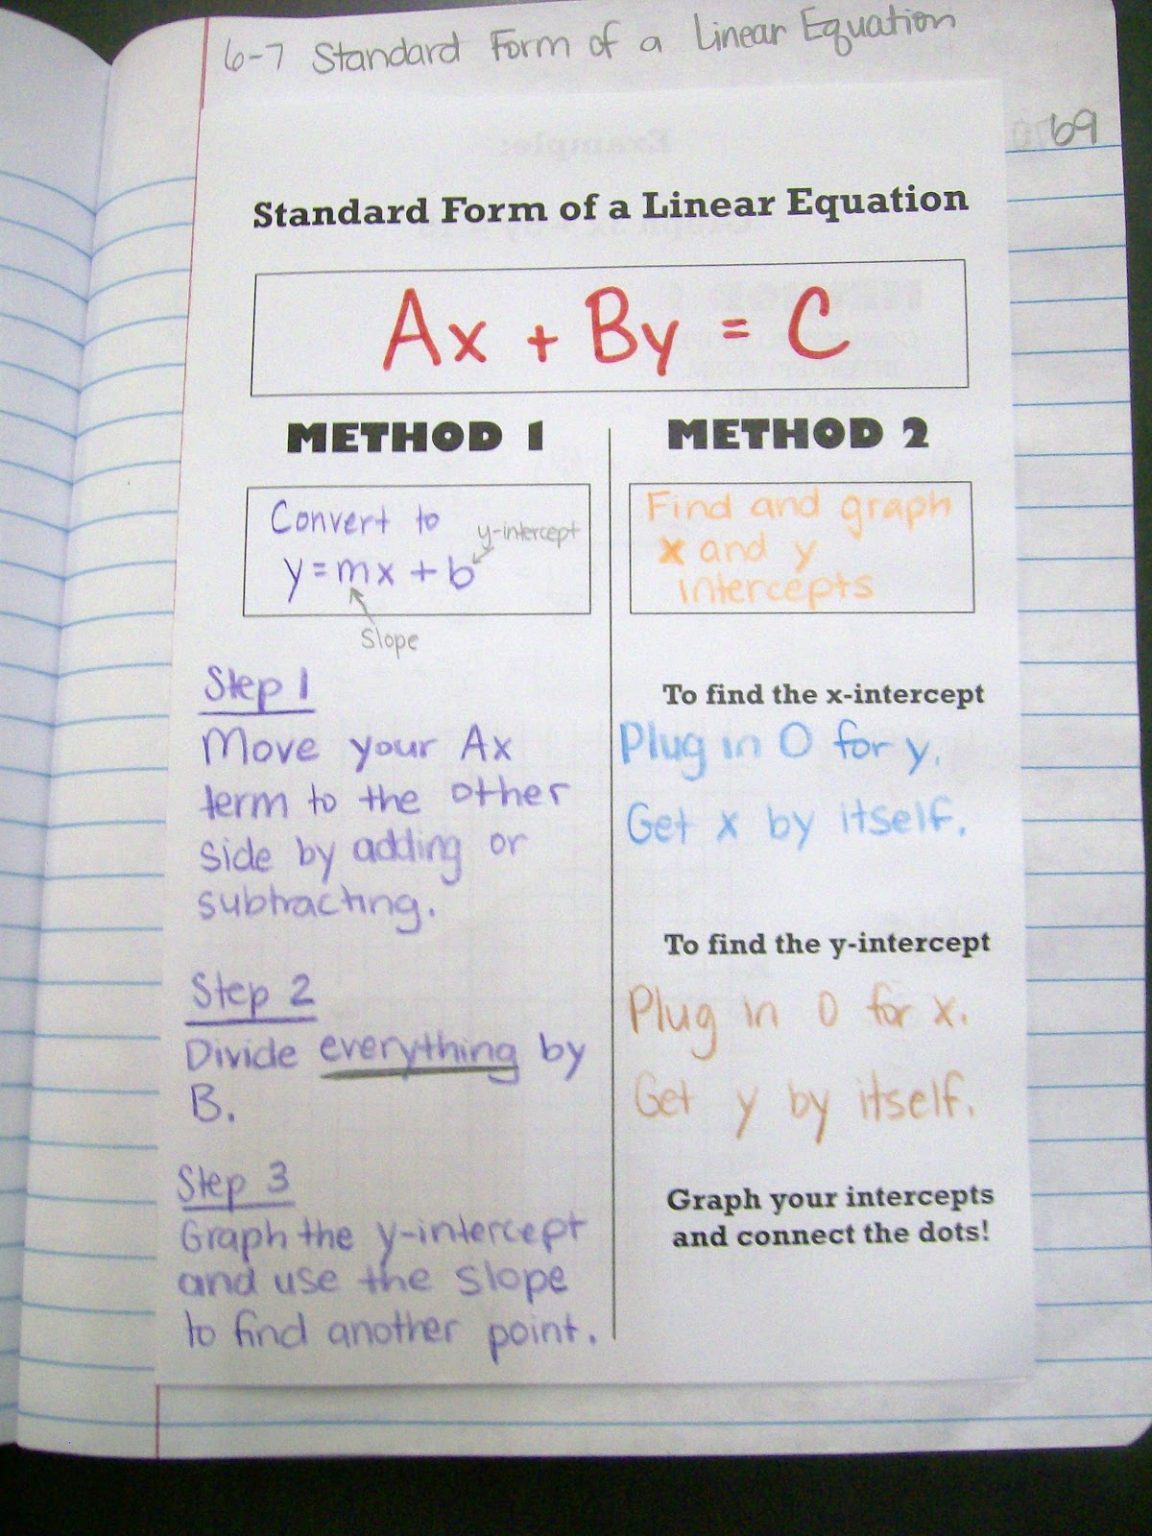 6-7 Standard Form of a Linear Equation
69
Standard Form of a Linear Equation
Ax + By = C
METHOD 1
Convert to
y-intercept
y = mx + b
Slope
Step 1
Move your Ax
term to the other
side by adding or
subtracting.
Step 2
Divide everything by
B.
Step 3
Graph the y-intercept
and use the slope
to find another point.
METHOD 2
Find and graph
x and y
intercepts
To find the x-intercept
Plug in 0 for y.
Get x by itself.
To find the y-intercept
Plug in 0 for x.
Get y by itself.
Graph your intercepts
and connect the dots!